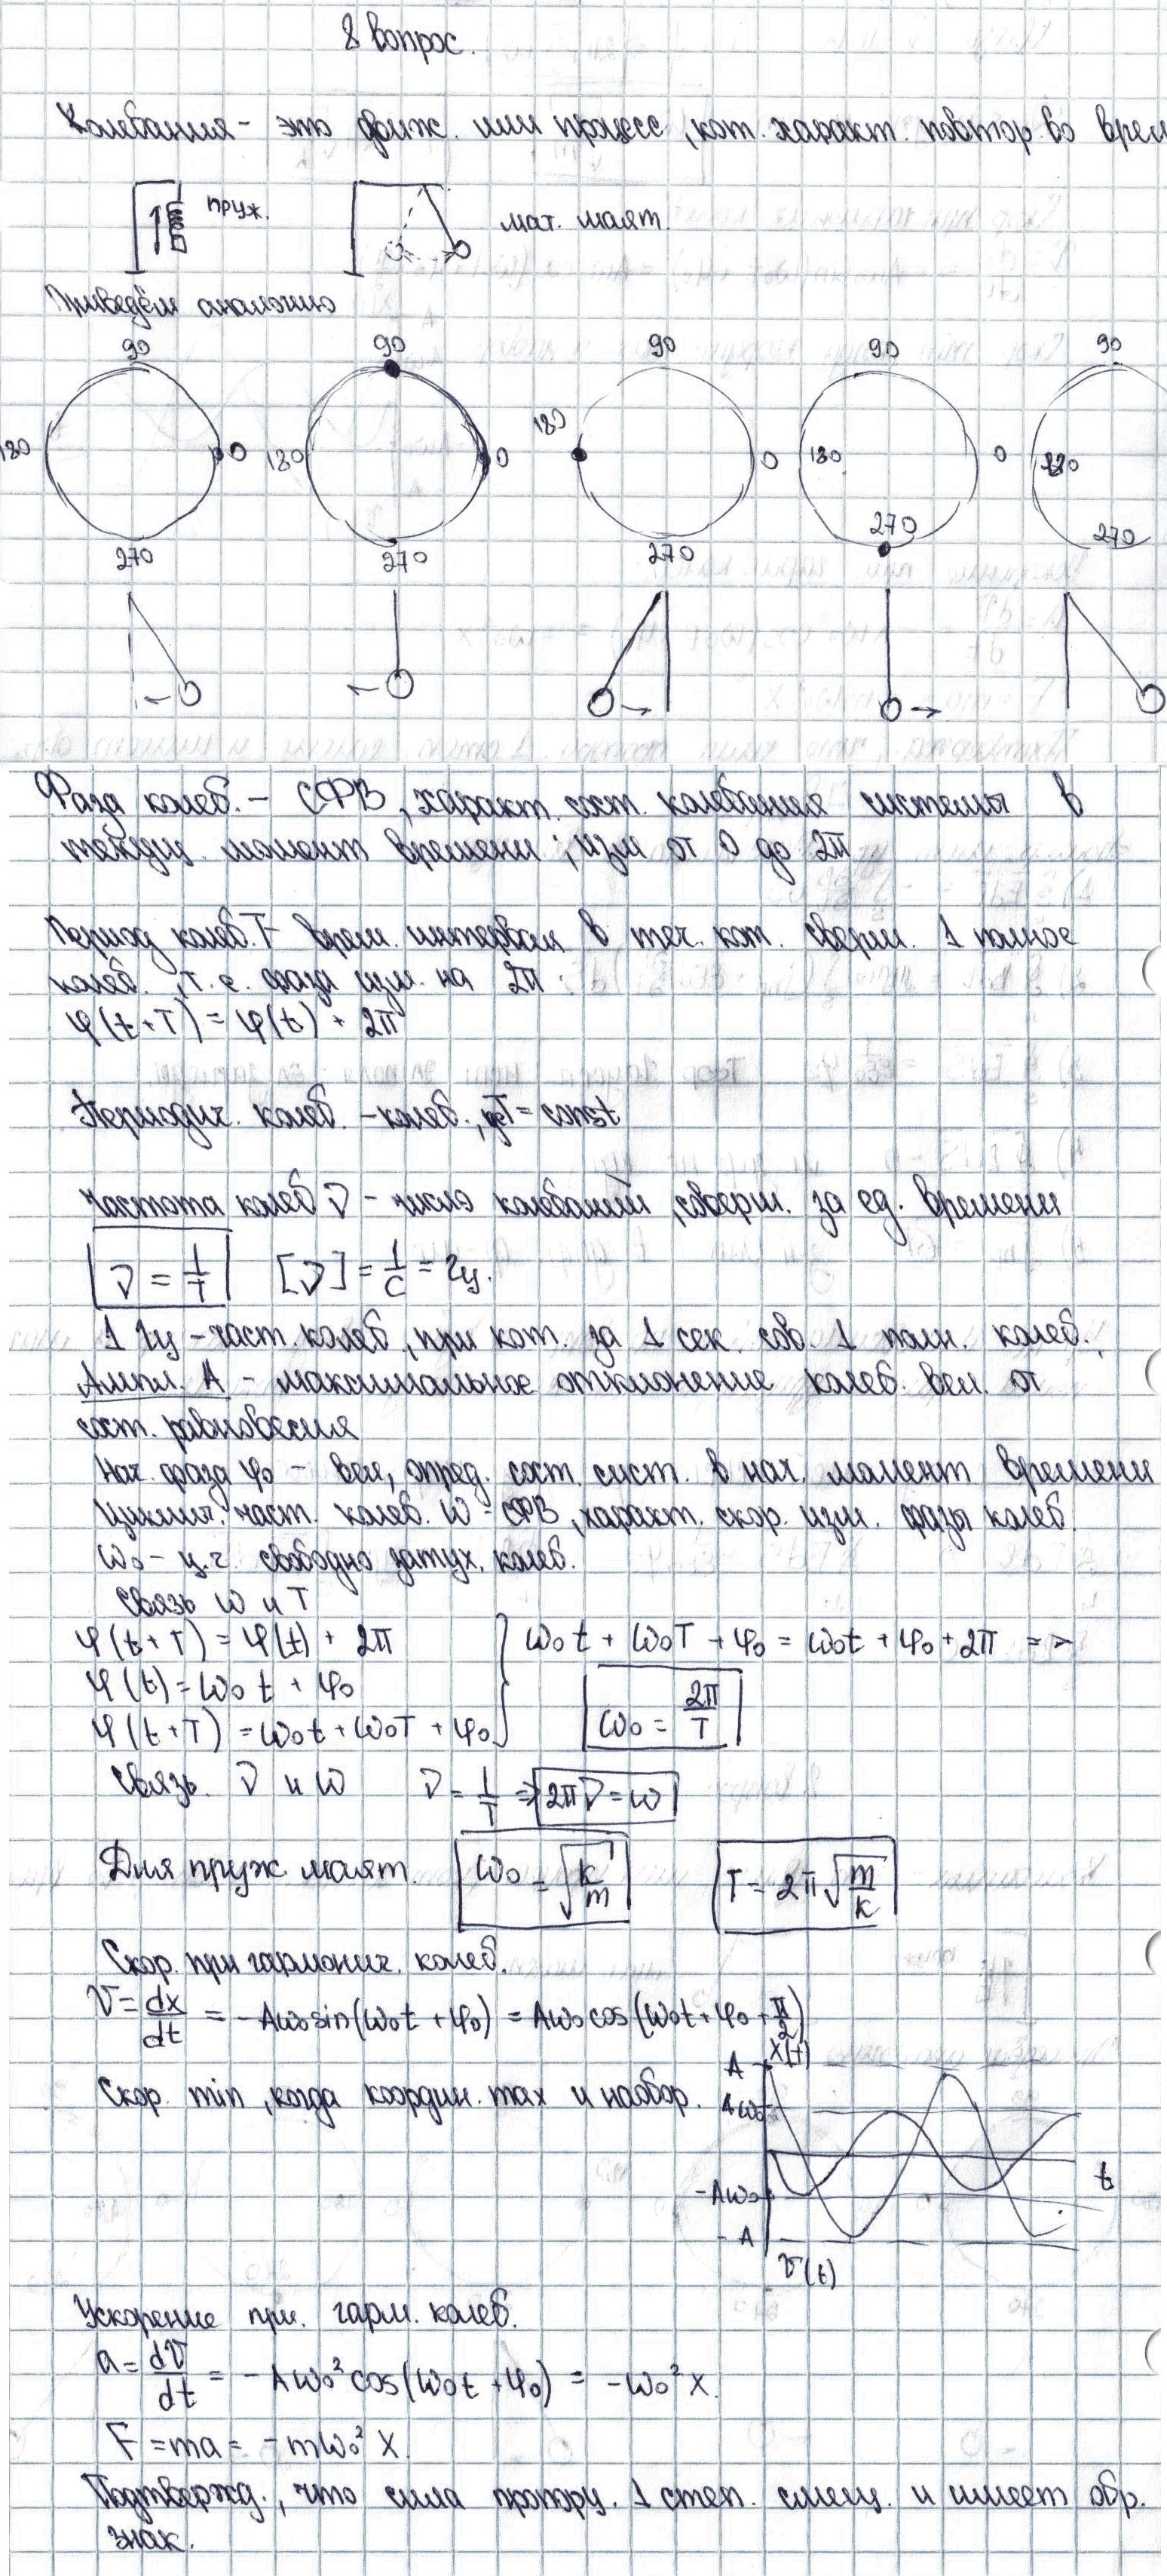 8 вопрос.
Колебания - это движ. или процесс, кот. характ. повтор. во врем
пруж.
мат. маят.
Приведём аналогию
90 90 90 90 90
180 0 180 0 180 0 180 0 180
270 270 270 270 270
Фаза колеб. - СФВ, характ. сост. колебания системы в
текущ. момент времени; изм от 0 до 2π
Период колеб. T врем. интервал в теч. кот. сверш. 1 полное
колеб., т. е. фаза изм. на 2π.
φ(t+T) = φ(t) + 2π
Периодич. колеб. - колеб., T = const
Частота колеб ν - число колебаний, соверш. за ед. времени
ν = 1/T [ν] = 1/c = Гц.
1 Гц - част. колеб, при кот. за 1 сек. сов. 1 полн. колеб.
Ампл. A - максимальное отклонение колеб. вел. от
сост. равновесия
Нач. фаза φ₀ - вел, опред. сост. сист. в нач. момент времени
Циклич. част. колеб. ω - СФВ, характ. скор. изм. фазы колеб.
ω₀ - ц.ч. свободно затух. колеб.
Связь ω и T
φ(t+T) = φ(t) + 2π
φ(t) = ω₀t + φ₀
φ(t+T) = ω₀t + ω₀T + φ₀
ω₀t + ω₀T + φ₀ = ω₀t + φ₀ + 2π =>
ω₀ = 2π/T
Связь ν и ω ν = 1/T => 2πν = ω
Для пруж маят. ω₀ = √(k/m) T = 2π√(m/k)
Скор. при гармонич. колеб.
v = dx/dt = -Aω₀sin(ω₀t + φ₀) = Aω₀cos(ω₀t + φ₀ + π/2)
Скор. min, когда координ. max и наобор.
x(t)
A
Aω₀
-Aω₀
-A
t
v(t)
Ускорение при. гарм. колеб.
a = dv/dt = -Aω₀²cos(ω₀t + φ₀) = -ω₀²x.
F = ma = -mω₀²x.
Подтвержд., что сила пропорц. 1 степ. смещ. и имеет обр.
знак.